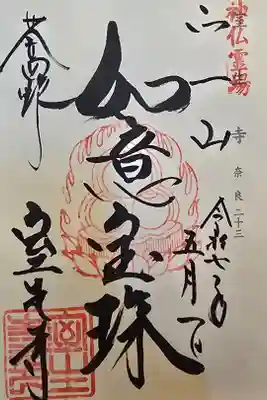 神仏霊場
宀一山
寺 奈良二十三
令和七年
五月一日
如意宝珠
女人高野
室生寺